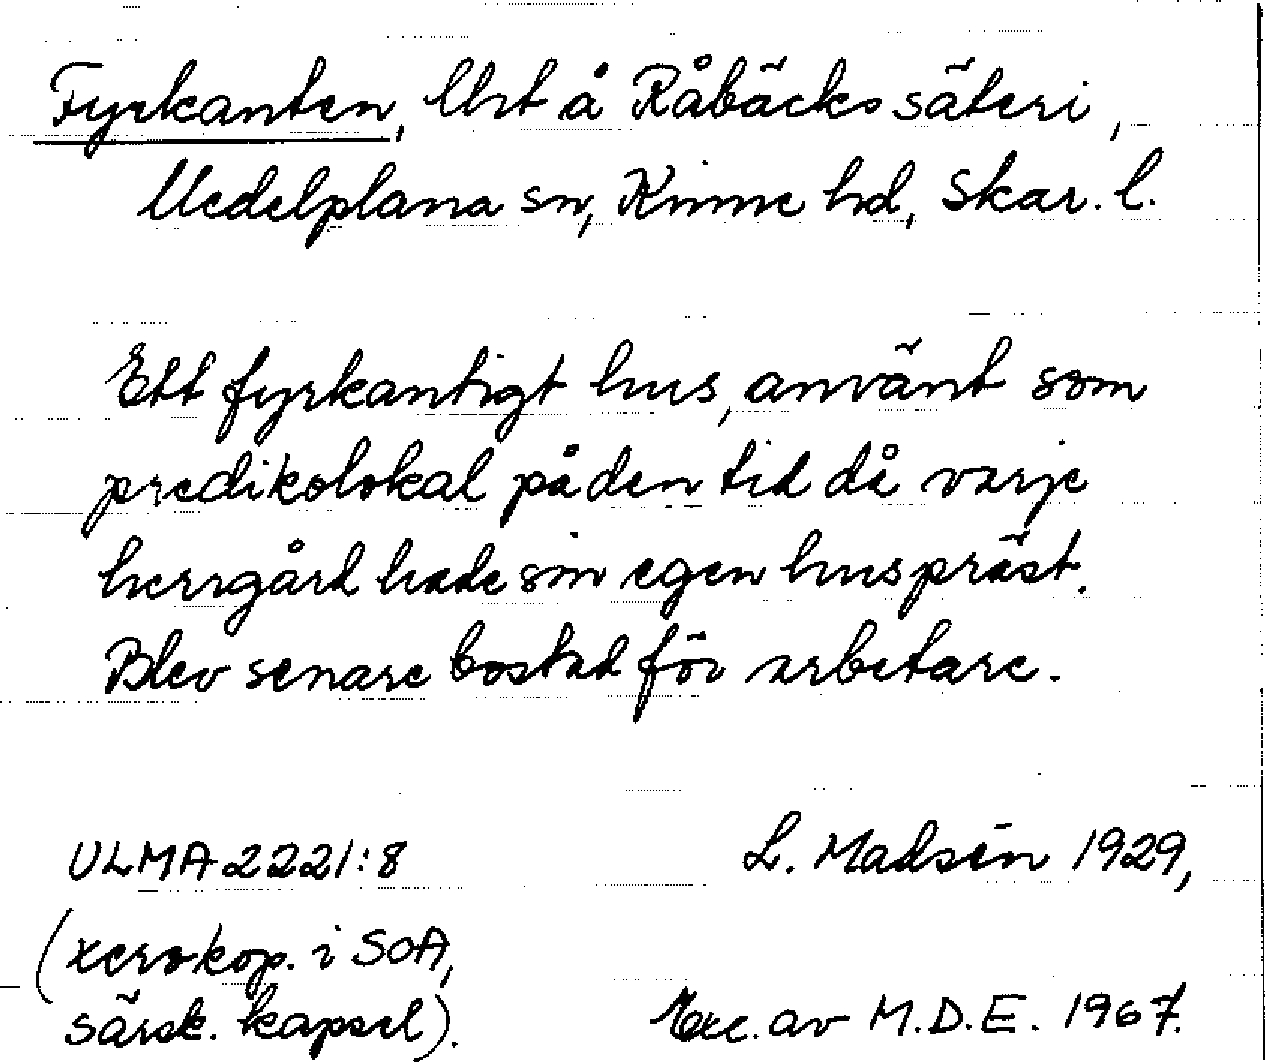 Fyrkanten, lht å Råbäcks säteri,
Medelplana sn, Kinne hd, Skar. l.
Ett fyrkantigt hus, använt som
predikolokal på den tid då varje
herrgård hade sin egen huspräst.
Blev senare bostad för arbetare.
ULMA 2221:8
L. Madsén 1929,
(xerokop. i SOA,
särsk. kapsel).
Exc. av M.D.E. 1967.